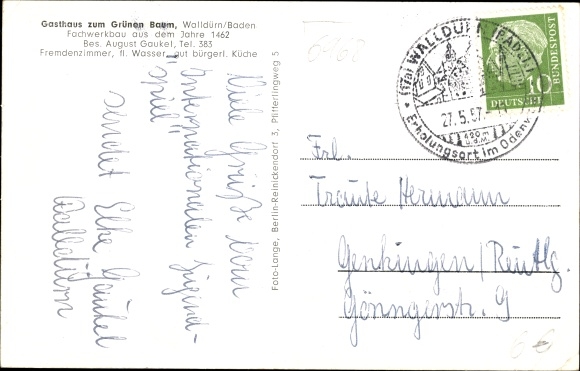 Gasthaus zum Grünen Baum, Walldürn/Baden
Fachwerkbau aus dem Jahre 1462
Bes. August Gaukel, Tel. 383
Fremdenzimmer, fl. Wasser, gut bürgerl. Küche
Viele Grüße vom
"Internationalen Jugend-
spiel"
sendet Elke Gaukel
Walldürn
Foto-Lange, Berlin-Reinickendorf 3, Pfitterlingweg 5
6168
(17a) WALLDÜRN (BADEN)
27.5.57
420 m
ü.d.M.
Erholungsort im Odenw
DEUTSCHE BUNDESPOST
10
Frl.
Traute Hermann
Genkingen/Reutlg.
Gönningerstr. 9
6€